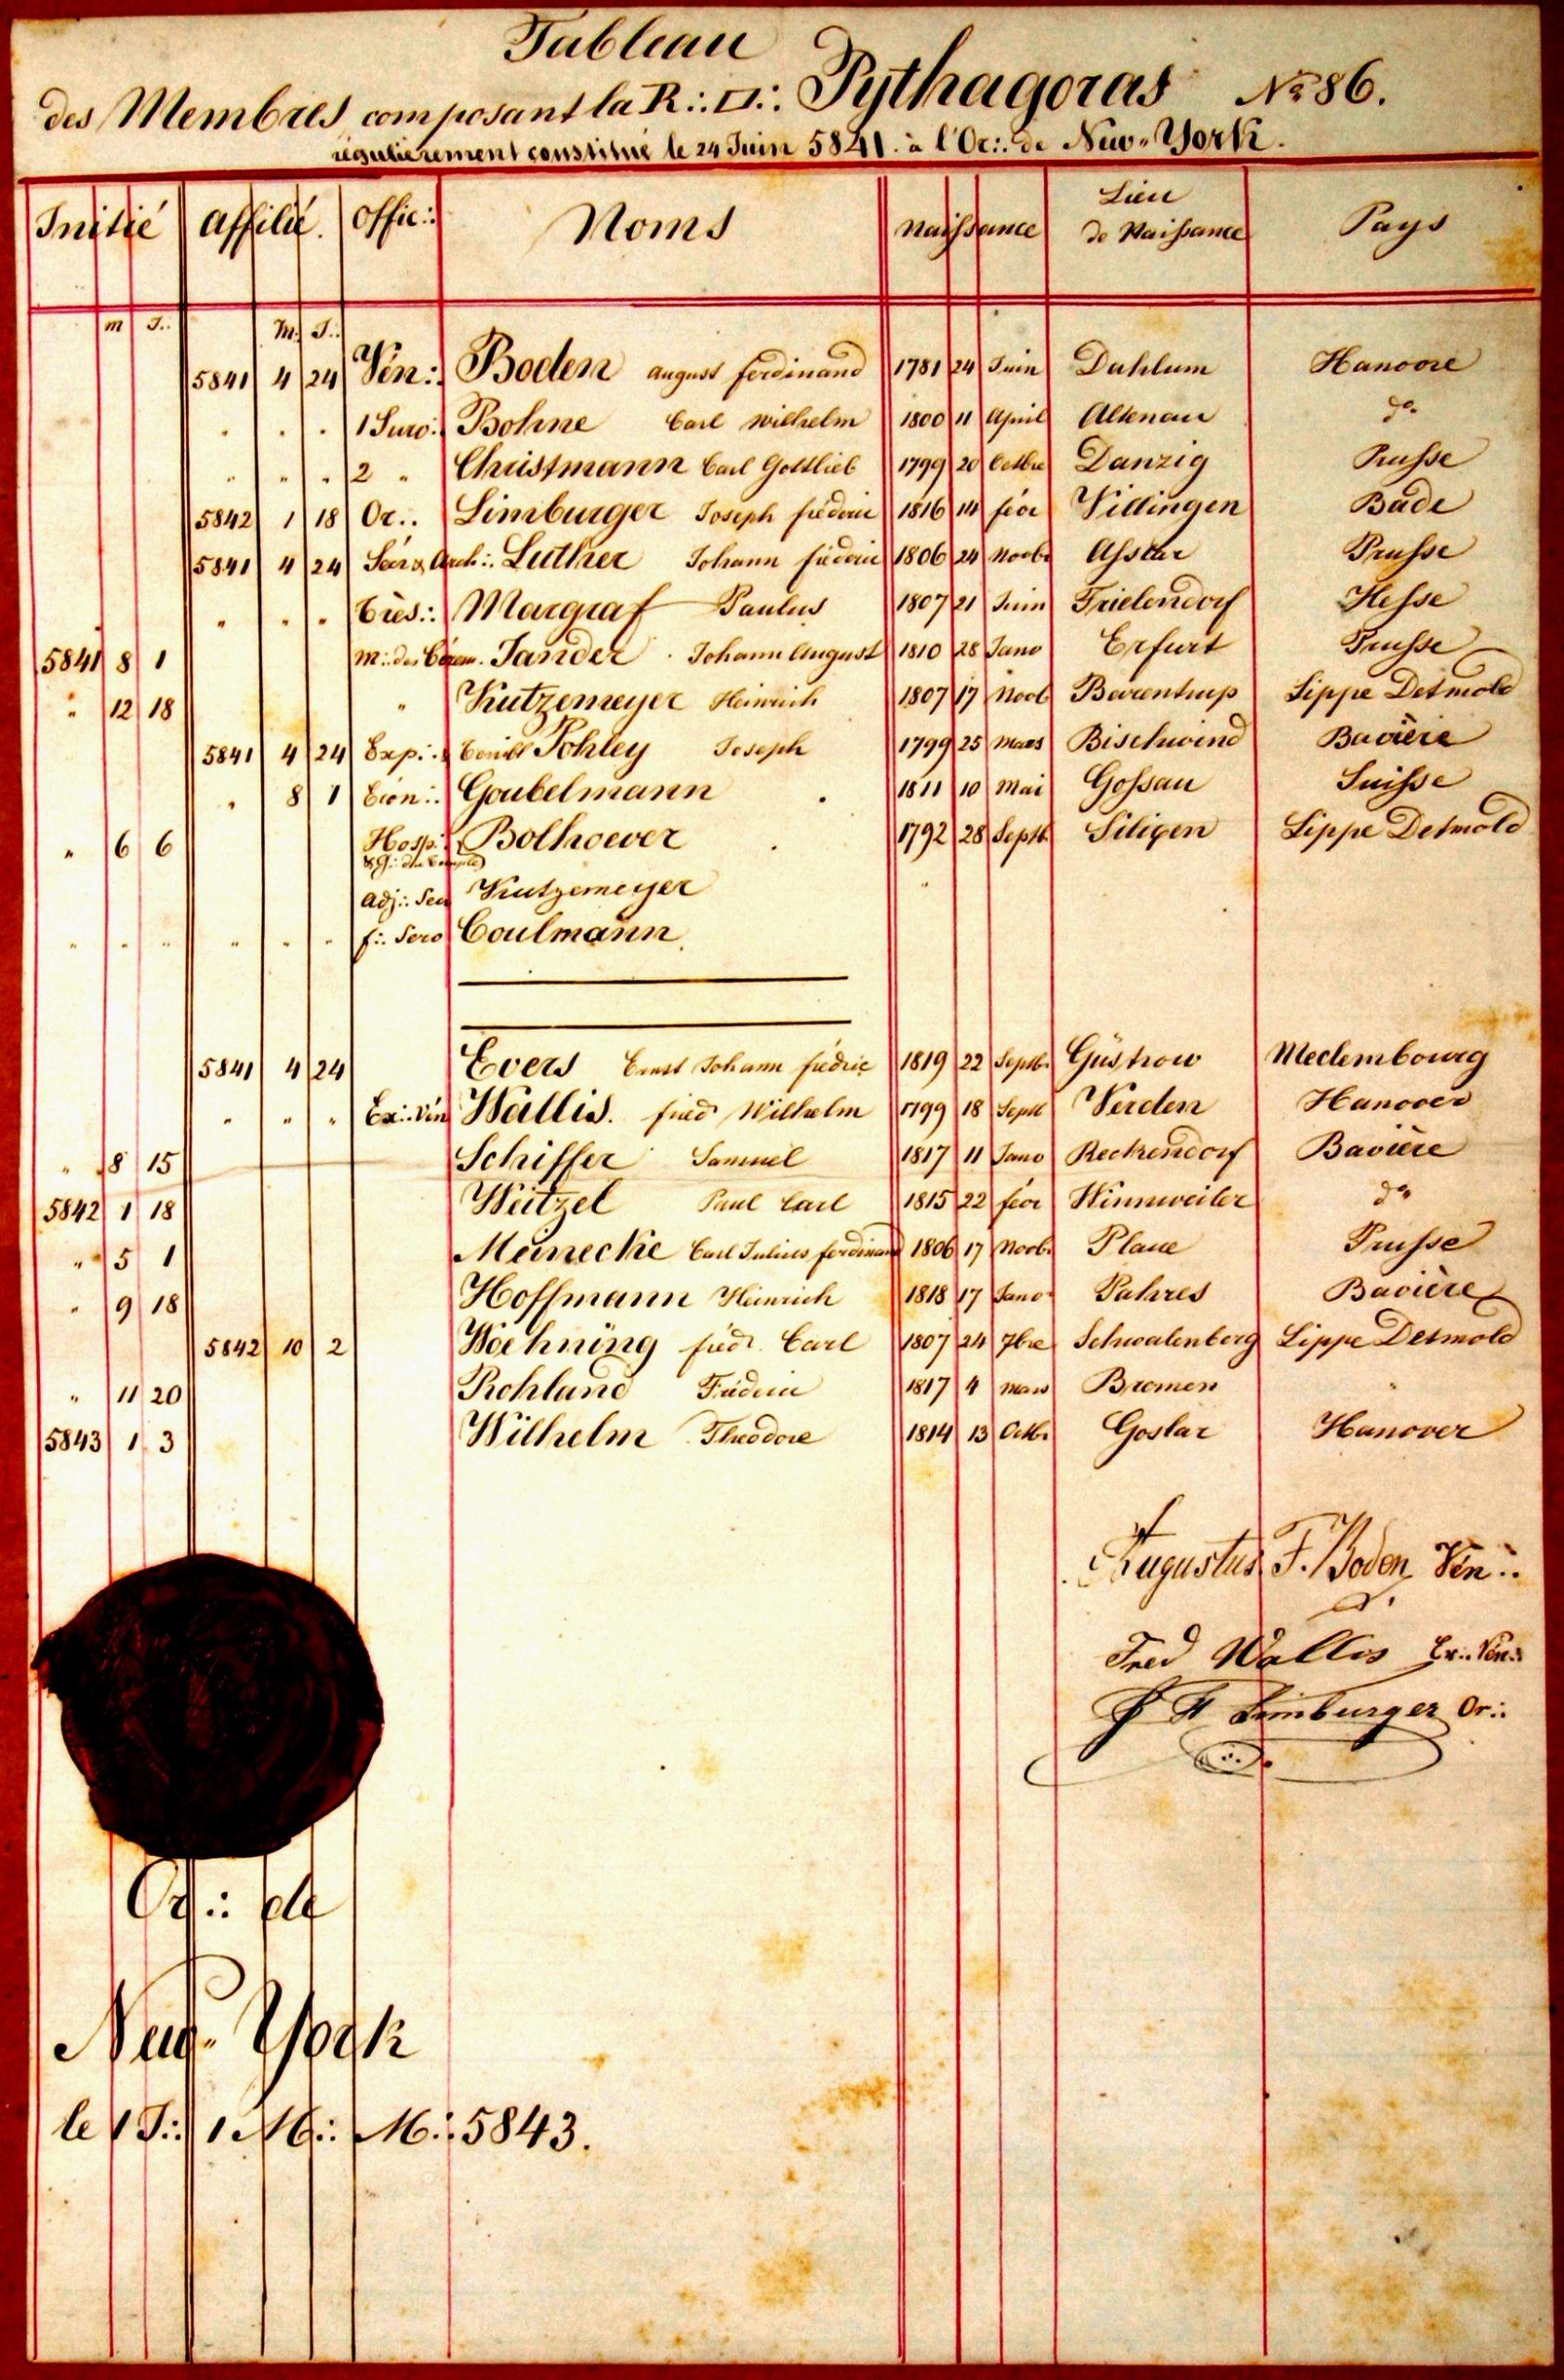 Tableau
des Membres composant la R∴ □∴ Pythagoras No 86.
régulièrement constitué le 24 Juin 5841. à l'Or∴ de New-York.
Initié Affilié. Offic∴ Noms Naissance Lieu de Naissance Pays
m J∴ M∴ J∴
5841 4 24 Vén∴ Boden August Ferdinand 1781 24 Juin Dahlum Hanovre
" " " 1 Surv∴ Bohne Carl Wilhelm 1800 11 April Altenau do
" " " 2 " Christmann Carl Gottlieb 1799 20 Octbre Danzig Prusse
5842 1 18 Or∴ Limburger Joseph fréderic 1816 14 fév Villingen Bade
5841 4 24 Secr & Arch∴ Luther Johann fréderic 1806 24 Novb. Asslar Prusse
" " " Trés∴ Margraf Paulus 1807 21 Juin Frielendorf Hesse
5841 8 1 m∴ des Cérem. Jander Johann August 1810 28 Janv Erfurt Prusse
" 12 18 " Kutzemeyer Heinrich 1807 17 Novb Barentrup Lippe Detmold
5841 4 24 Exp∴ & Terribl Pohley Joseph 1799 25 Mars Bischwind Bavière
" 8 1 Goubelmann 1811 10 Mai Gossau Suisse
" 6 6 Hosp∴ Bolhoever 1792 28 Septb. Siligen Lippe Detmold
Adj∴ Sec Kutzemeyer
" " " " " " f∴ Serv Coulmann
5841 4 24 Evers Ernst Johann frédric 1819 22 Septb. Güstrow Meclembourg
" " " Ex∴ Vén Wallis. fried Wilhelm 1799 18 Septb Verden Hanover
" 8 15 Schiffer Samuel 1817 11 Janv Reckendorf Bavière
5842 1 18 Weitzel Paul Carl 1815 22 fév Winnweiler do
" 5 1 Meinecke Carl Julius ferdinand 1806 17 Novb. Plaue Prusse
" 9 18 Hoffmann Heinrich 1818 17 Janv Pahres Bavière
5842 10 2 Woehning fréd. Carl 1807 24 7bre Schwalenberg Lippe Detmold
" 11 20 Rohland Fréderic 1817 4 mars Bremen "
5843 1 3 Wilhelm Theodore 1814 13 Octbr Goslar Hanover
Augustus F. Boden Vén∴
Fred Wallis Ex∴ Vén∴
J F Limburger Or∴
Or∴ de
New-York
le 1 J∴ 1 M∴ M∴ 5843.